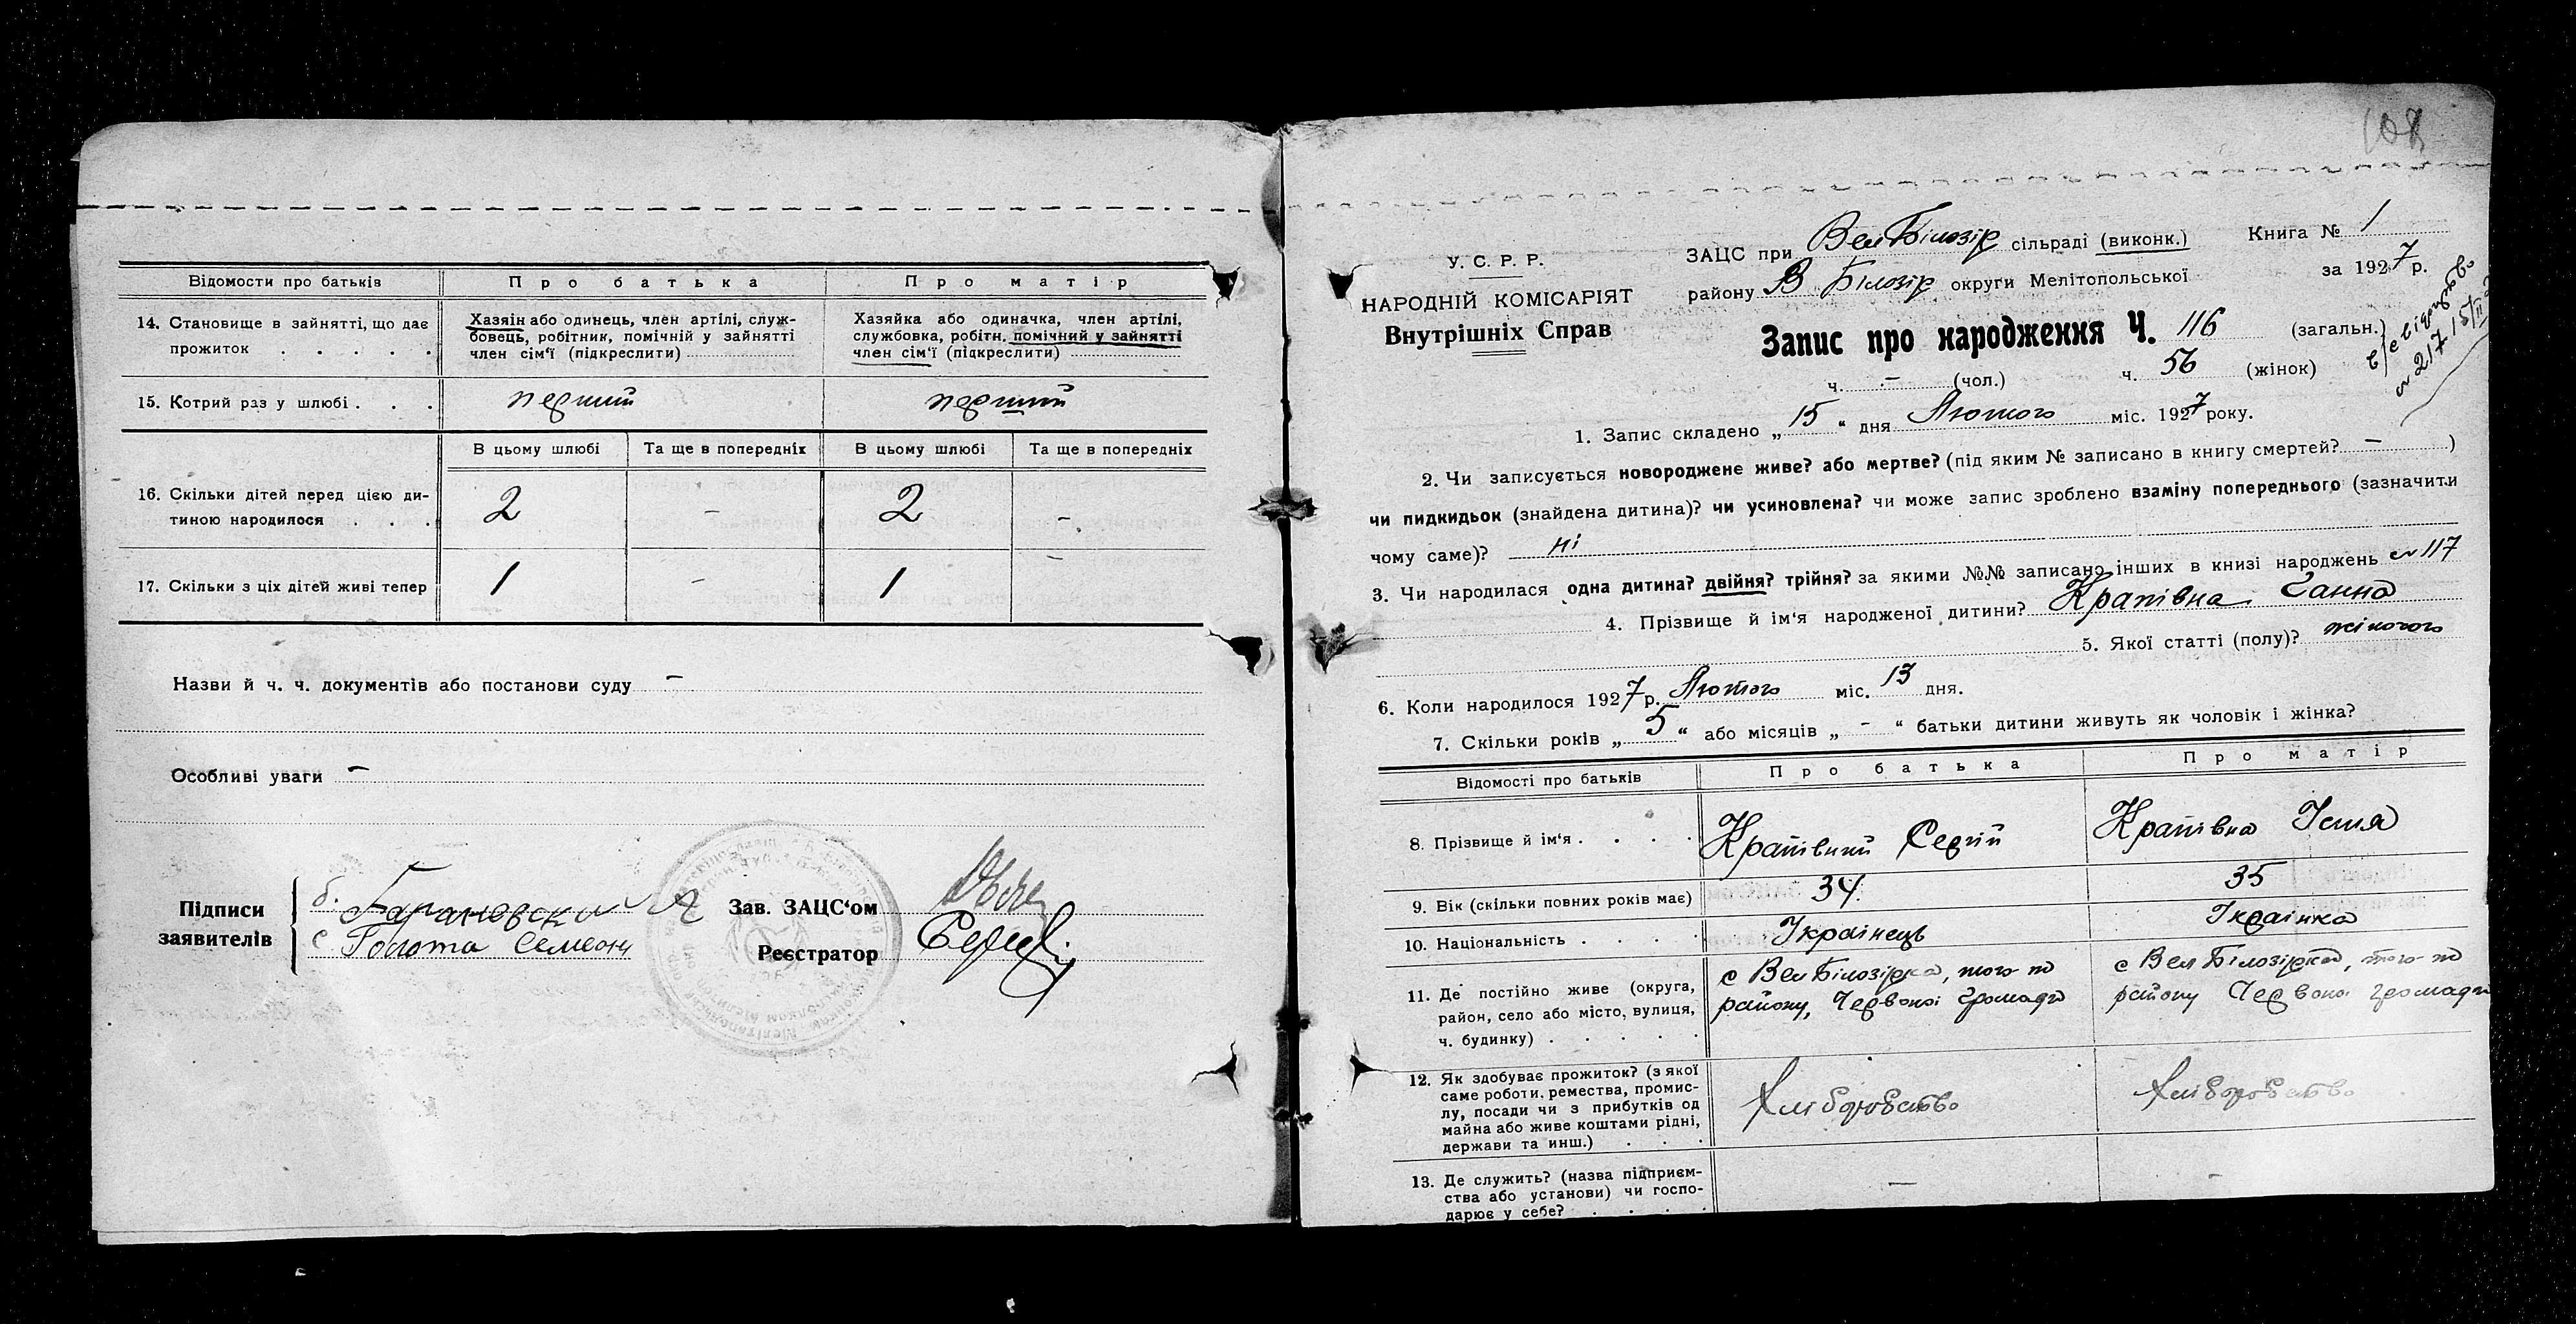 Відомости про батьків
Про батька
Про матір
14. Становище в зайнятті, що дає прожиток . . . . .
Хазяін або одинець, член артілі, служ-
бовець, робітник, помічній у зайнятті
член сім'ї (підкреслити)
Хазяйка або одиначка, член артілі,
службовка, робітн. помічний у зайнятті
член сім'ї (підкреслити)
15. Котрий раз у шлюбі . . .
перший
перший
В цьому шлюбі
Та ще в попередніх
В цьому шлюбі
Та ще в попередніх
16. Скільки дітей перед цією ди-
тиною народилося . . .
2
-
2
-
17. Скільки з ціх дітей живі тепер
1
-
1
-
Назви й ч. ч. документів або постанови суду -
Особливі уваги -
Підписи
заявителів
б.
с Голота Семеон
Зав. ЗАЦС'ом
Реєстратор
108
У. С. Р. Р.
НАРОДНІЙ КОМІСАРІЯТ
Внутрішніх Справ
ЗАЦС при Вел Білозір сільраді (виконк.)
району В Білозір округи Мелітопольської
Книга № 1
за 1927 р.
Запис про народження Ч. 116 (загальн.)
ч. - (чол.) ч. 56 (жінок)
№ 217 15/II
1. Запис складено „15“ дня Лютого міс. 1927 року.
2. Чи записується новороджене живе? або мертве? (під яким № записано в книгу смертей? - )
чи пидкидьок (знайдена дитина)? чи усиновлена? чи може запис зроблено взаміну попереднього (зазначити
чому саме)? ні
3. Чи народилася одна дитина? двійня? трійня? за якими №№ записано інших в книзі народжень № 117
4. Прізвище й ім'я народженої дитини? Крапівна Ганна
5. Якої статті (полу)? жіночого
6. Коли народилося 1927 р. Лютого міс. 13 дня.
7. Скільки років „5“ або місяців „-“ батьки дитини живуть як чоловік і жінка?
Відомості про батьків
Про батька
Про матір
8. Прізвище й ім'я . . . .
Крапівний Сергій
Крапівна
9. Вік (скільки повних років має)
34
35
10. Національність . . . .
Українець
Українка
11. Де постійно живе (округа,
район, село або місто, вулиця,
ч. будинку) . . . . .
с Вел Білозірка, того по
району, Червоної громади
с Вел Білозірка, того по
району Червоної громади
12. Як здобуває прожиток? (з якої
саме роботи, ремества, промис-
лу, посади чи з прибутків од
майна або живе коштами рідні,
держави та инш.) . . .
Хліборобство
Хліборобство
13. Де служить? (назва підприєм-
ства або установи) чи госпо-
дарює у себе? . . . .
-
-